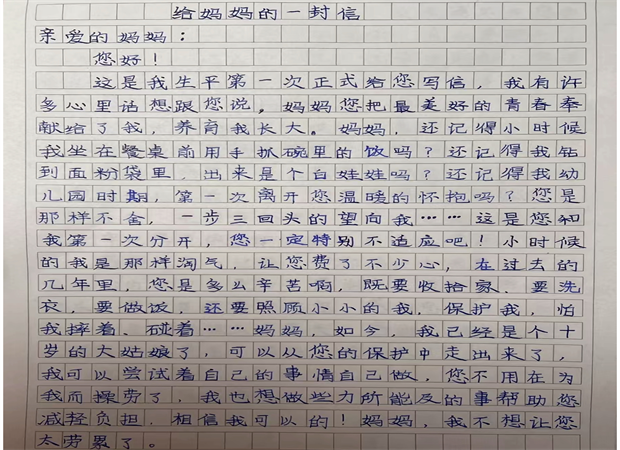 给妈妈的一封信
亲爱的妈妈：
您好！
这是我生平第一次正式给您写信，我有许
多心里话想跟您说。妈妈您把最美好的青春奉
献给了我，养育我长大。妈妈，还记得小时候
我坐在餐桌前用手抓碗里的饭吗？还记得我钻
到面粉袋里，出来是个白娃娃吗？还记得我幼
儿园时期，第一次离开您温暖的怀抱吗？您是
那样不舍，一步三回头的望向我……这是您和
我第一次分开，您一定特别不适应吧！小时候
的我是那样淘气，让您费了不少心，在过去的
几年里，您是多么辛苦啊，既要收拾家、要洗
衣，要做饭，还要照顾小小的我，保护我，怕
我摔着、碰着……妈妈，如今，我已经是个十
岁的大姑娘了，可以从您的保护中走出来了，
我可以尝试着自己的事情自己做，您不用在为
我而操劳了，我也想做些力所能及的事帮助您
减轻负担，相信我可以的！妈妈，我不想让您
太劳累了。